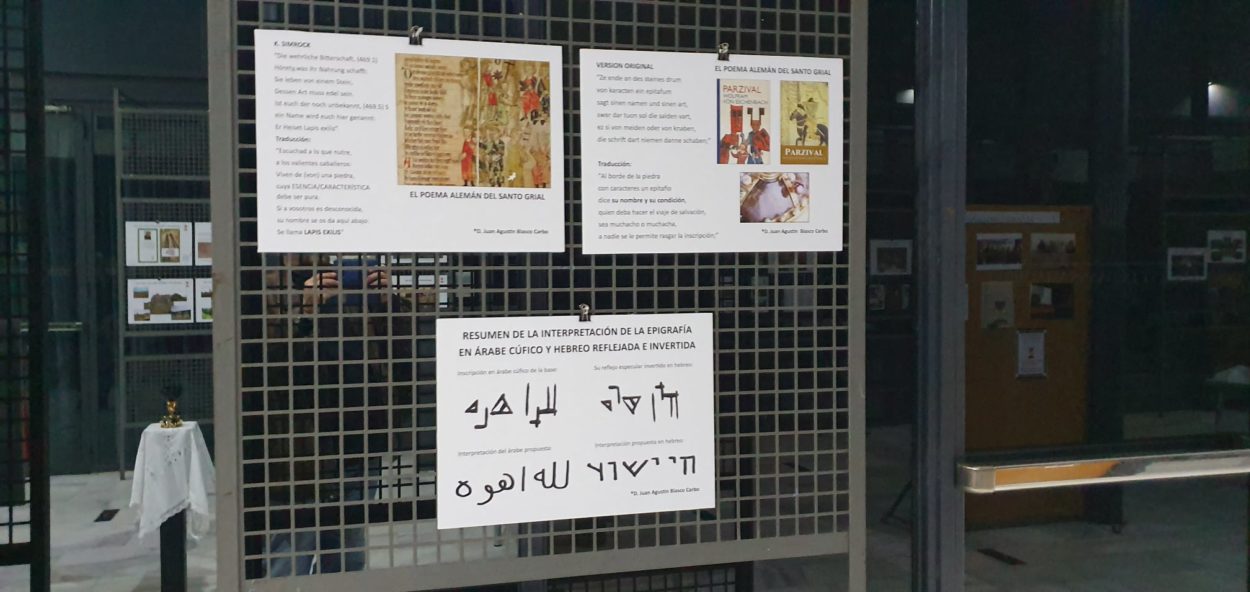 K. SIMROCK
"Die wehrliche Ritterschaft, (469.1)
Hörets, was ihr Nahrung schafft:
Sie leben von einem Stein,
Dessen Art muss edel sein.
Ist euch der noch unbekannt, (469.5) S
ein Name wird euch hier genannt:
Er Heiset Lapis exilis"
Traducción:
"Escuchad a lo que nutre,
a los valientes caballeros:
Viven de (von) una piedra,
cuya ESENCIA/CARACTERÍSTICA
debe ser pura.
Si a vosotros es desconocida,
su nombre se os da aquí abajo:
Se llama LAPIS EXILIS"
EL POEMA ALEMÁN DEL SANTO GRIAL
*D. Juan Agustín Blasco Carbo
VERSION ORIGINAL
"Ze ende an des steines drum
von karacten ein epitafum
sagt sinen namen und sinen art,
swer dar tuon sol die salden vart,
ez si von meiden oder von knaben,
die schrift darf niemen danne schaben;"
Traducción:
"Al borde de la piedra
con caracteres un epitafio
dice su nombre y su condición,
quien debe hacer el viaje de salvación,
sea muchacho o muchacha,
a nadie se le permite rasgar la inscripción;"
EL POEMA ALEMÁN DEL SANTO GRIAL
PARZIVAL
WOLFRAM
VON ESCHENBACH
PARZIVAL
*D. Juan Agustín Blasco Carbo
RESUMEN DE LA INTERPRETACIÓN DE LA EPIGRAFÍA
EN ÁRABE CÚFICO Y HEBREO REFLEJADA E INVERTIDA
Inscripción en árabe cúfico de la base:
Su reflejo especular invertido en hebreo:
Interpretación del árabe propuesta:
Interpretación propuesta en hebreo:
لله اهوه
חי ישוע
*D. Juan Agustín Blasco Carbo